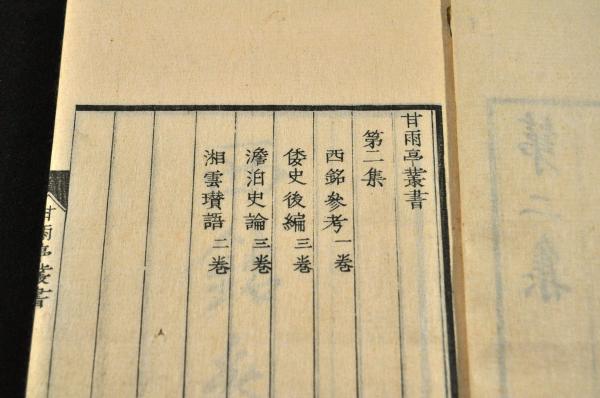 甘雨亭叢書
第二集
西銘參考一卷
倭史後編三卷
澹泊史論三卷
湘雲瓚語二卷
甘雨亭叢書
第二集